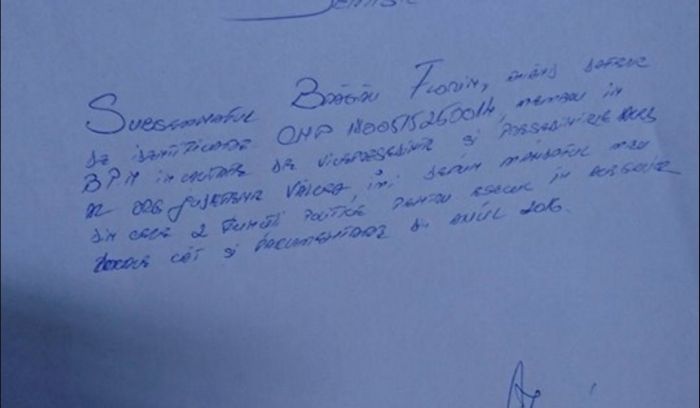 Demisie
Subsemnatul Drăgău Florin, având datele
de identificare CNP, membru în
BPN în calitate de vicepreședinte și președinte
al org județene Vâlcea, îmi depun mandatul meu
din cele 2 funcții politice pentru eșecul în alegerile
locale cât și parlamentare din anul 2016.